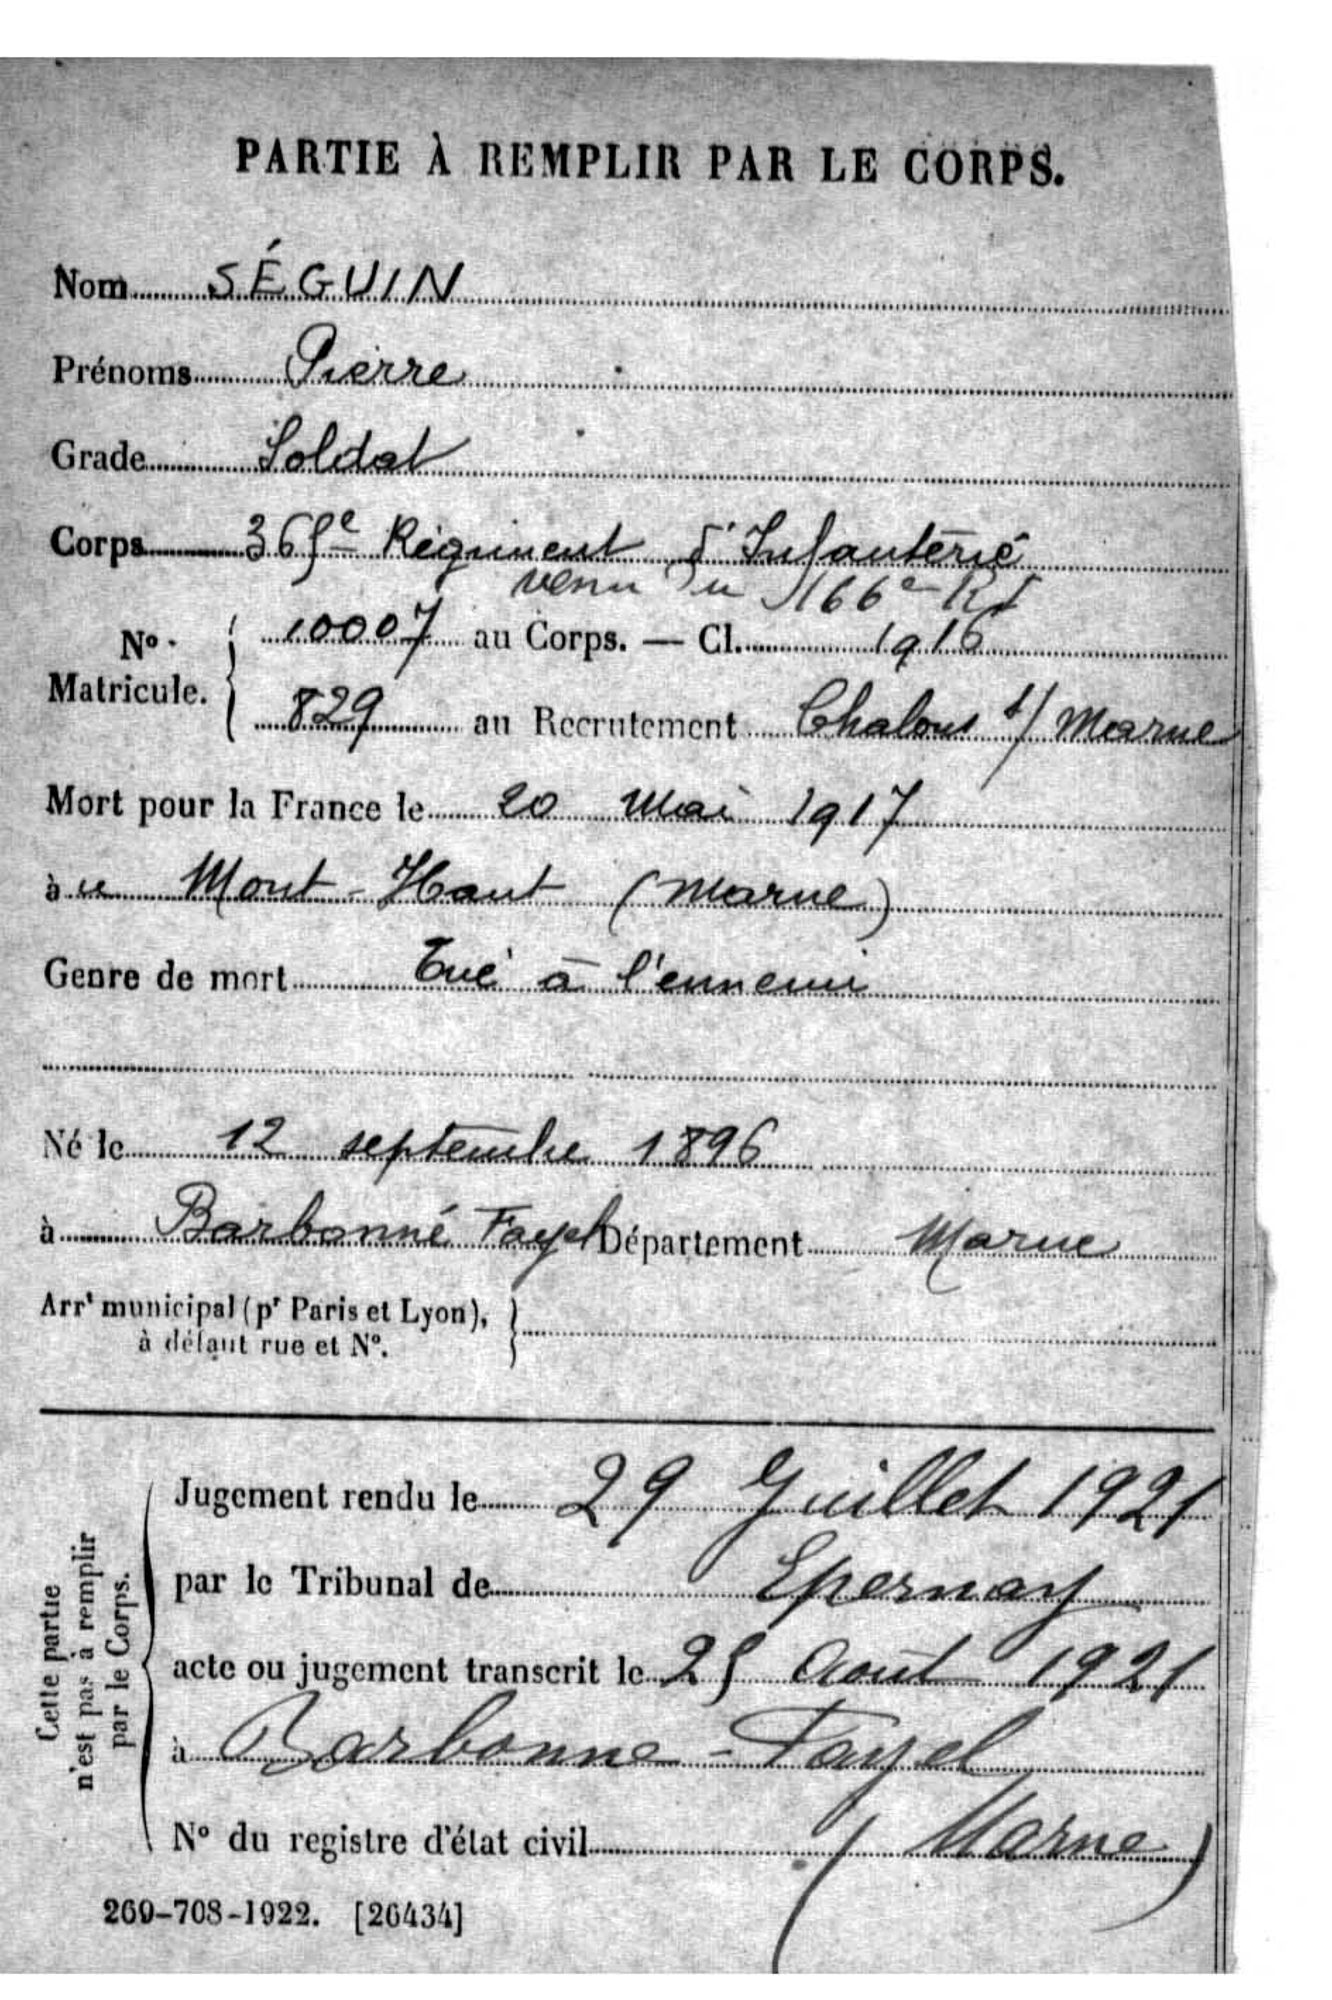 PARTIE À REMPLIR PAR LE CORPS.
Nom SÉGUIN
Prénoms Pierre
Grade Soldat
Corps 365e Régiment d'Infanterie
venu du 166e RI
Nº Matricule. 10007 au Corps. — Cl. 1916
829 au Recrutement Chalons s/ Marne
Mort pour la France le 20 Mai 1917
à u Mont-Haut (Marne)
Genre de mort Tué à l'ennemi
Né le 12 septembre 1896
à Barbonne Fayel Département Marne
Arrt municipal (pr Paris et Lyon),
à défaut rue et Nº.
Cette partie
n'est pas à remplir
par le Corps.
Jugement rendu le 29 Juillet 1921
par le Tribunal de Epernay
acte ou jugement transcrit le 25 Août 1921
à Barbonne-Fayel
Nº du registre d'état civil (Marne)
269-708-1922. [26434]